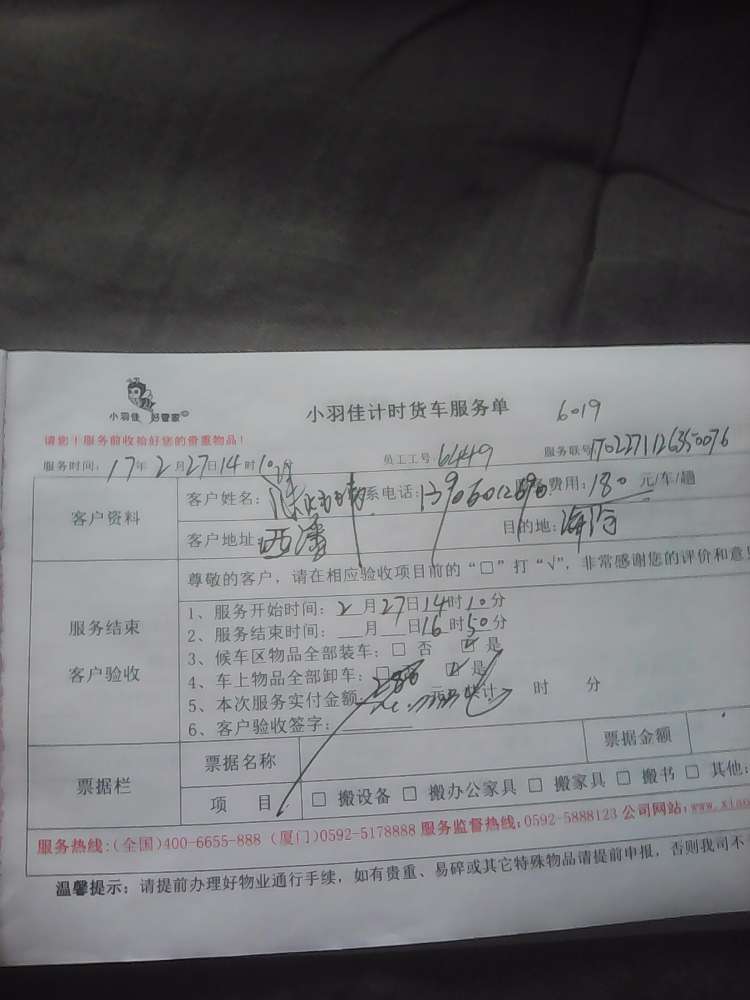 小羽佳 好管家
小羽佳计时货车服务单 6019
请您!服务前收拾好您的贵重物品!
服务时间: 17年 2月27日14时10分 员工工号: 6449 服务联号
客户资料
客户姓名: 系电话: 费用: 180 元/车/趟
客户地址: 西潘 目的地: 海沧
服务结束
客户验收
尊敬的客户,请在相应验收项目前的“□”打“√”,非常感谢您的评价和意
1、服务开始时间: 2月27日14时10分
2、服务结束时间: 月 日16时50分
3、候车区物品全部装车: □ 否 ☑ 是
4、车上物品全部卸车: □ ☑ 是
5、本次服务实付金额: 共计: 时 分
6、客户验收签字:
票据栏
票据名称 票据金额
项 目 □ 搬设备 □ 搬办公家具 □ 搬家具 □ 搬书 □ 其他:
服务热线:(全国)400-6655-888 (厦门)0592-5178888 服务监督热线:0592-5888123 公司网站:www.xiao
温馨提示: 请提前办理好物业通行手续,如有贵重、易碎或其它特殊物品请提前申报,否则我司不